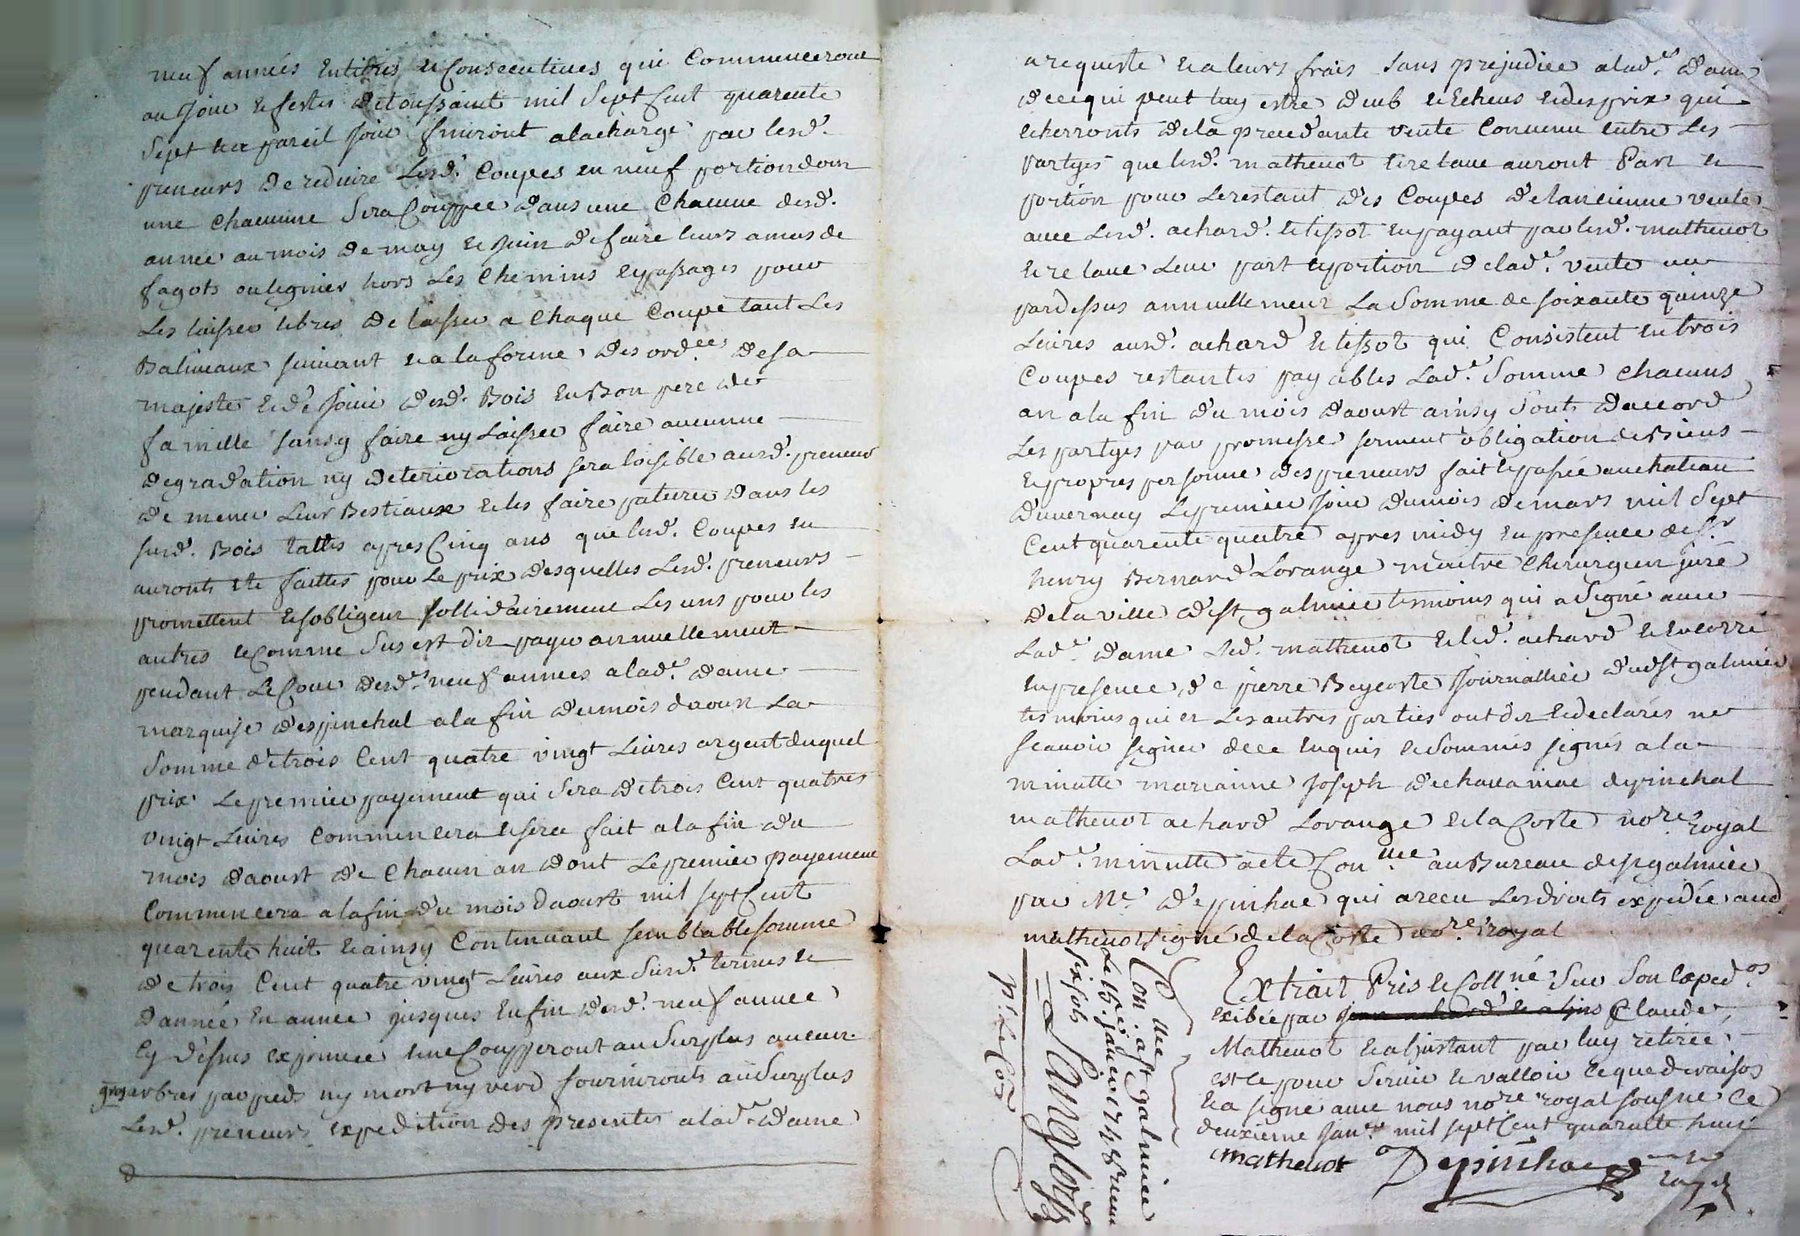 neuf années entieres et Consecutives qui Commenceront
au jour et festes de toussaint mil Sept Cent quarente
Sept et a pareil jour finiront a la charge par lesd.
preneurs de reduire Lesd. Coupes en neuf portion dont
une Chacunne Sera Couppée dans une Chacune desd.
année au mois de may et Juin de faire leurs amas de
fagots ou legnier hors Les Chemins et passages pour
Les laisser libres de laisser a Chaque Coupe tant Les
Baliveaux suivant et a la forme des ord.ces de sa
majesté et de jouir desd. Bois en Bon pere de
famille sans y faire ny Laisser faire aucunne
degradation ny deteriorations sera loisible ausd. preneur
de mener Leur Bestiaux et les faire paturer dans les
susd. Bois tallis apres Cinq ans que lesd. Coupes en
auronts été faittes pour Le prix desquelles Lesd. preneurs
promettent et sobligent sollidairement Les uns pour les
autres et Comme Sus est dit payer annuellement
pendant Le Cour desd.es neuf annees a lad.e dame
marquise despinchal a la fin du mois daoust La
Somme de trois Cent quatre vingt Livres argent duquel
prix Le premier payement qui Sera de trois Cent quatres
vingt Livres Commencera et sera fait a la fin du
mois daoust de Chacun an dont Le premier payement
Commencera a la fin du mois daoust mil sept Cent
quarente huit et ainsy Continuant semblable somme
de trois Cent quatre vingt Livres aux Susd. termes et
dannée en année jusques en fin desd. neuf année
Cy dessus exprimée et ne Coupperont au Surplus aucun
gros arbres par pied ny mort ny verd fournironts au Surplus
Lesd. preneurs expedition des presentes a lad.e dame
a requeste et a leurs frais sans prejudice a lad.e dame
de ce qui peut luy estre deub et Echeus et des prix qui
echerronts de la precedante vente Convenu entre Les
partyes que lesd. mathevot et relave auront Part et
portion pour Le restant des Coupes de lancienne vente
avec Lesd. achard et tissot en payant par lesd. mathevot
et relave Leur part et portion de lad.e vente
par dessus annuellement La Somme de soixante quinze
Livres ausd. achard et tissot qui Consistent en trois
Coupes restantes payables Lad.e Somme chacuns
an a la fin du mois daoust ainsy Sonts daccord
Les partyes par promesse serment obligation de Biens
et propres personne des preneurs fait et passée au chateau
duvernay Le premier jour du mois de mars mil Sept
Cent quarente quatre apres midy en presence de s.r
henry Bernard Lorange maitre Chirurgien juré
de la ville de st galmier temoins qui a Signé avec
Lad.e dame led. mathevot et led. achard et encorre
en presence de pierre Beycoste Journallier dud st galmier
temoins qui et Les autres parties ont dit et declarés ne
scavoir signer de ce enquis et Sommés signés a la
minutte marianne joseph de chavaniac despinchal
mathevot achard Lorange et la Coste no.re royal
Lad.e minutte acte Con.llée au Bureau de st galmier
par M.e depinhac qui a receu Les droits expedié aud
mathevot signé de la Coste no.re royal
Extrait Pris et Coll.né Sur Son Exped.on
exibée par Claude
Mathevot et a linstant par luy retirée
est ce pour Servir et valloir ce que de raison
et a signé avec nous no.re royal sousné Ce
deuxieme jan.er mil sept Cent quarante huit
Mathevot Depinhac
Con.llé a st galmier
Le 15.e janvier 1748 receu
six sols
Langlois
p.r Le Con